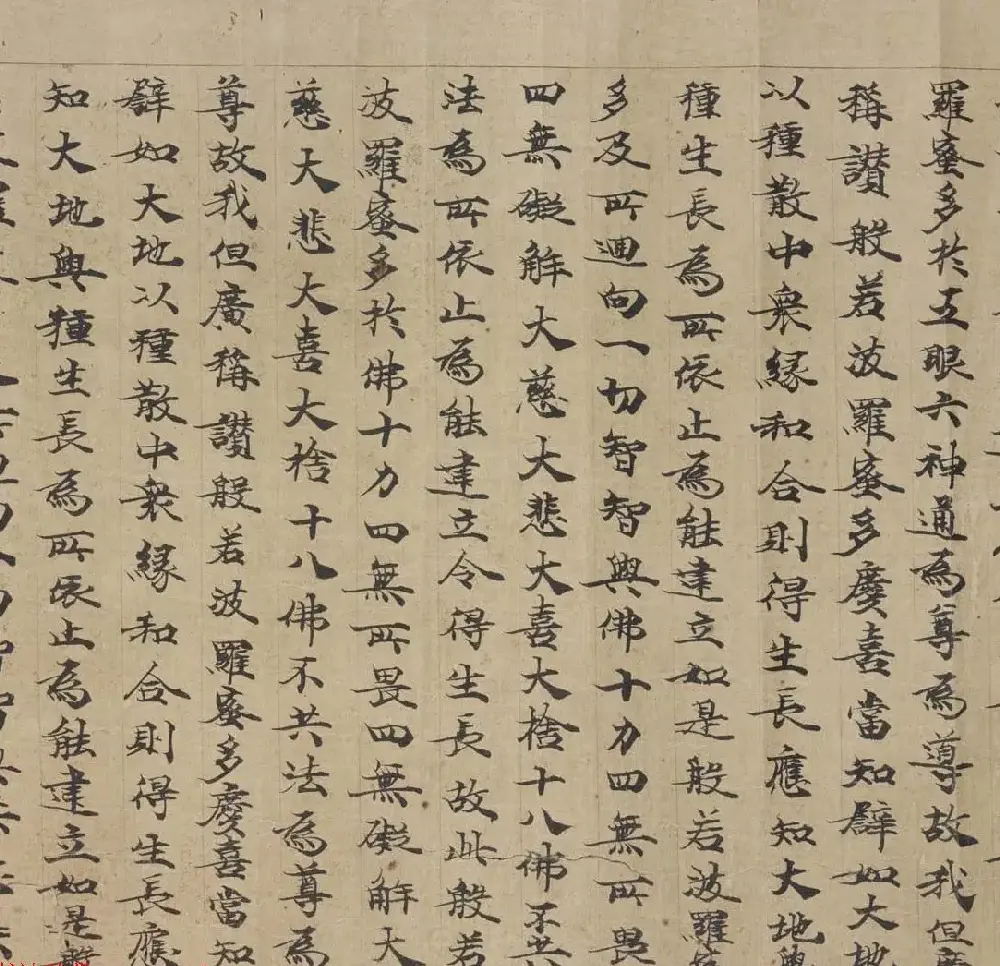 羅蜜多於五眼六神通為尊為導故我但廣
稱讚般若波羅蜜多慶喜當知譬如大地
以種散中衆緣和合則得生長應知大地與
種生長為所依止為能建立如是般若波羅蜜
多及所迴向一切智智與佛十力四無所畏
四無礙解大慈大悲大喜大捨十八佛不共
法為所依止為能建立令得生長故此般若
波羅蜜多於佛十力四無所畏四無礙解大
慈大悲大喜大捨十八佛不共法為尊為
尊故我但廣稱讚般若波羅蜜多慶喜當知
譬如大地以種散中衆緣和合則得生長應
知大地與種生長為所依止為能建立如是般